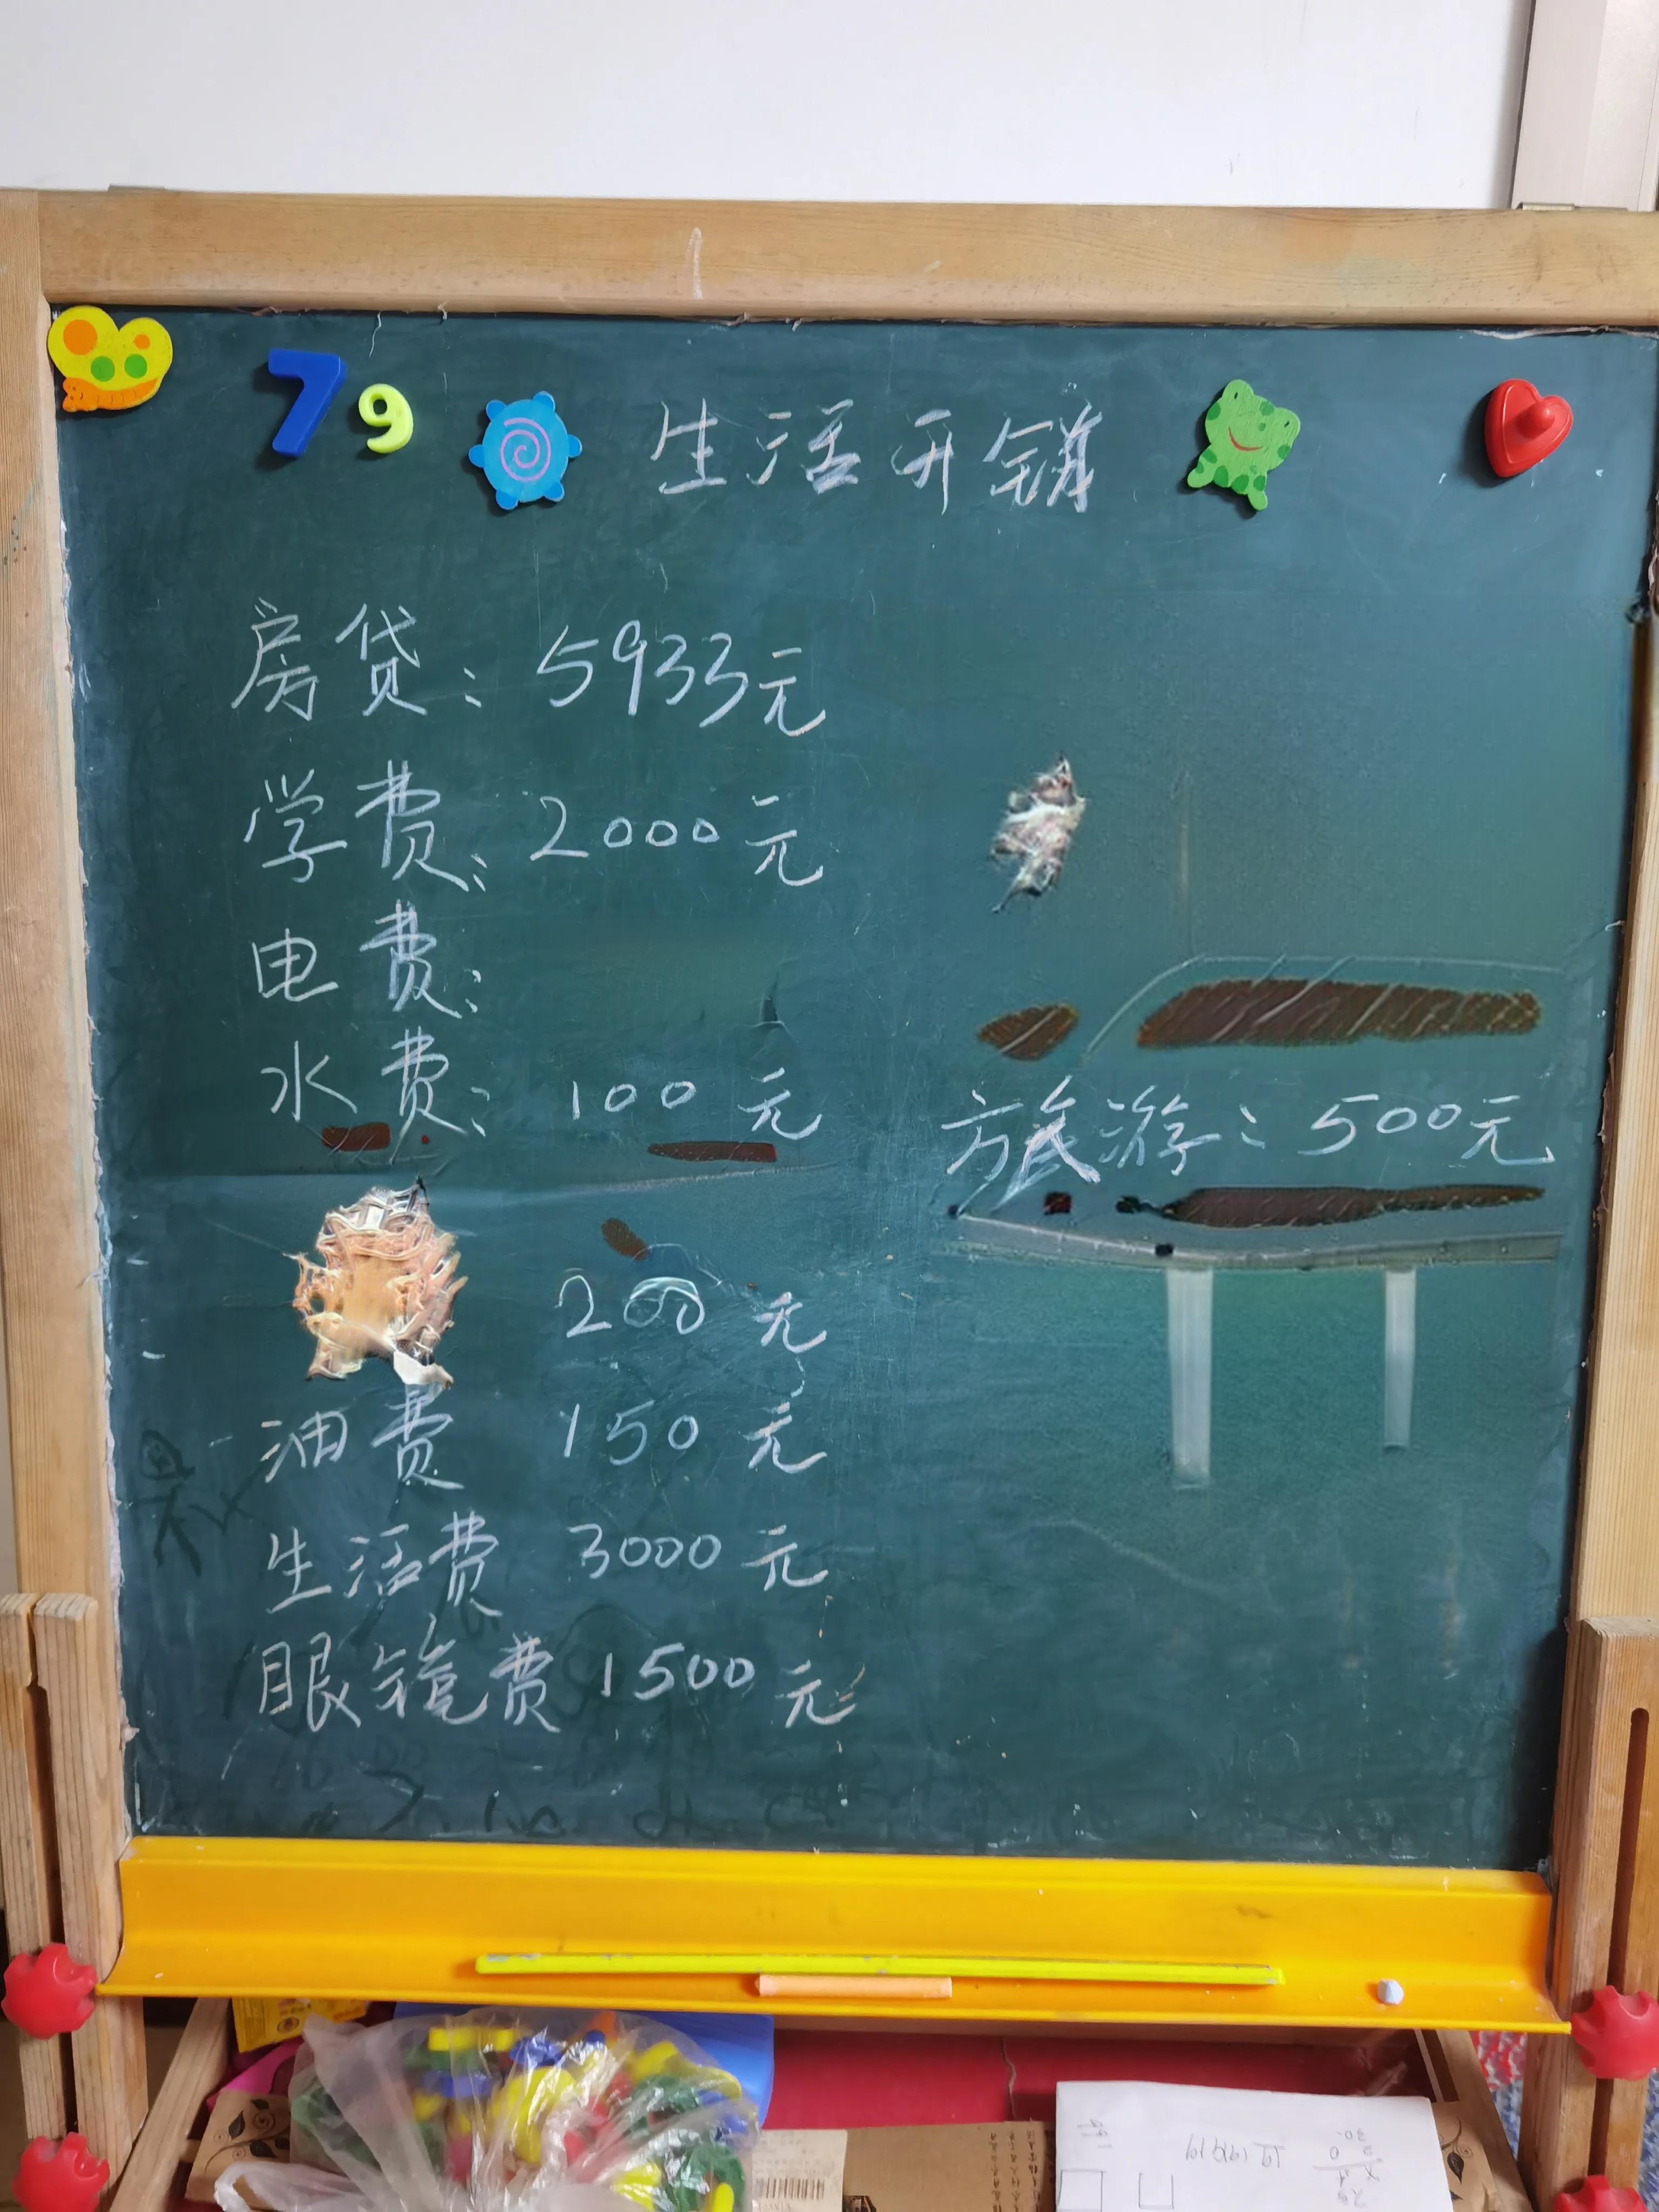 7 9
生活开销
房贷：5933元
学费：2000元
电费：
水费：100元
200元
油费 150元
生活费 3000元
眼镜费 1500元
旅游：500元